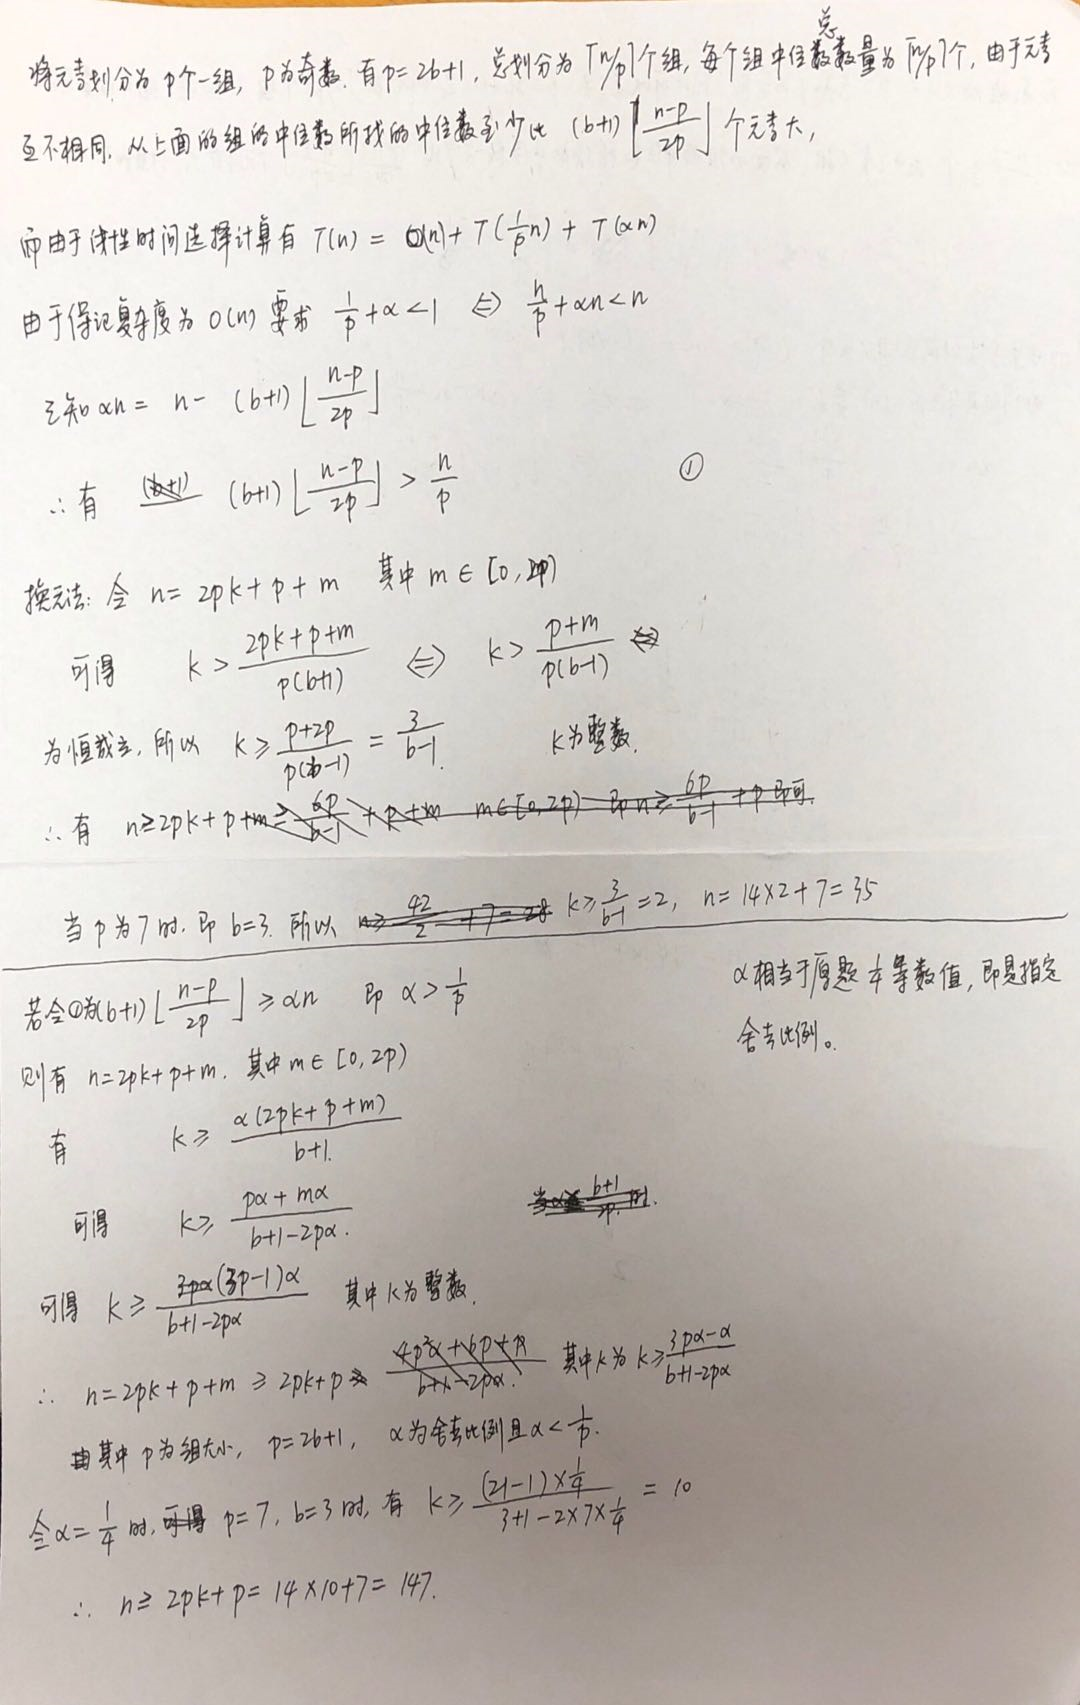 将元素划分为 p个一组, p为奇数. 有p=2b+1, 总划分为 ⌈n/p⌉个组, 每个组中位数总数量为⌈n/p⌉个, 由于元素
互不相同, 从上面的组的中位数所找的中位数至少比 (b+1)⌊(n-p)/2p⌋ 个元素大,
而由于线性时间选择计算有 T(n) = O(n) + T(1/p n) + T(αn)
由于保证复杂度为 O(n) 要求 1/p + α < 1 ⇔ n/p + αn < n
已知 αn = n - (b+1)⌊(n-p)/2p⌋
∴ 有 (b+1)⌊(n-p)/2p⌋ > n/p ①
换元法: 令 n = 2pk + p + m 其中 m ∈ [0, 2p)
可得 k > (2pk+p+m)/p(b+1) ⇔ k > (p+m)/p(b-1)
为恒成立, 所以 k ≥ (p+2p)/p(b-1) = 3/(b-1). k为整数.
∴ 有 n ≥ 2pk + p + m ≥ 6p/(b-1) + p + m m∈[0,2p) 即 n ≥ 6p/(b-1) + p 即可.
当 p 为 7 时. 即 b=3. 所以 n ≥ 42/2 + 7 = 28 k ≥ 3/(b-1) = 2, n = 14×2+7 = 35
若令①为(b+1)⌊(n-p)/2p⌋ ≥ αn 即 α > 1/p
α相当于原题 1/4 等数值, 即是指定
舍去比例。
则有 n=2pk+p+m. 其中 m ∈ [0, 2p)
有 k ≥ α(2pk+p+m)/(b+1).
可得 k ≥ (pα+mα)/(b+1-2pα).
可得 k ≥ (3p-1)α/(b+1-2pα) 其中 k 为 整数.
∴ n = 2pk+p+m ≥ 2pk+p 其中 k 为 k ≥ (3pα-α)/(b+1-2pα)
其中 p 为组大小, p=2b+1, α为舍去比例且 α < 1/p.
令 α = 1/4 时, 可得 p=7, b=3 时, 有 k ≥ (21-1)×1/4/(3+1-2×7×1/4) = 10
∴ n ≥ 2pk+p = 14×10+7 = 147.